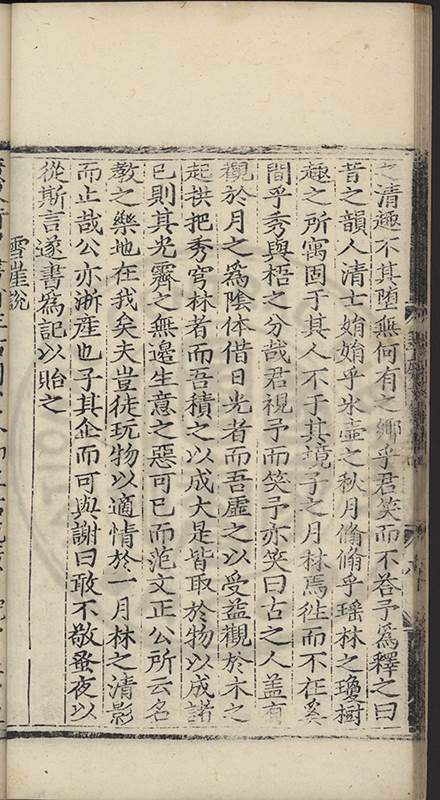 之清趣不其堕無何有之鄉乎君笑而不荅予爲釋之曰
昔之韻人清士娟娟乎氷壺之秋月翛翛乎瑶林之瓊樹
趣之所寓固于其人不于其境子之月林焉徃而不在奚
間乎秀與梧之分哉君視予而笑予亦笑曰古之人盖有
觀於月之爲陰体借日光者而吾虚之以受益觀於木之
起拱把秀穹林者而吾積之以成大是皆取於物以成諸
已則其光霽之無邊生意之惡可已而范文正公所云名
教之樂地在我矣夫豈徒玩物以適情於一月林之清影
而止哉公亦浙産也子其企而可與謝曰敢不敬蚤夜以
從斯言遂書爲記以貽之
雪崖説